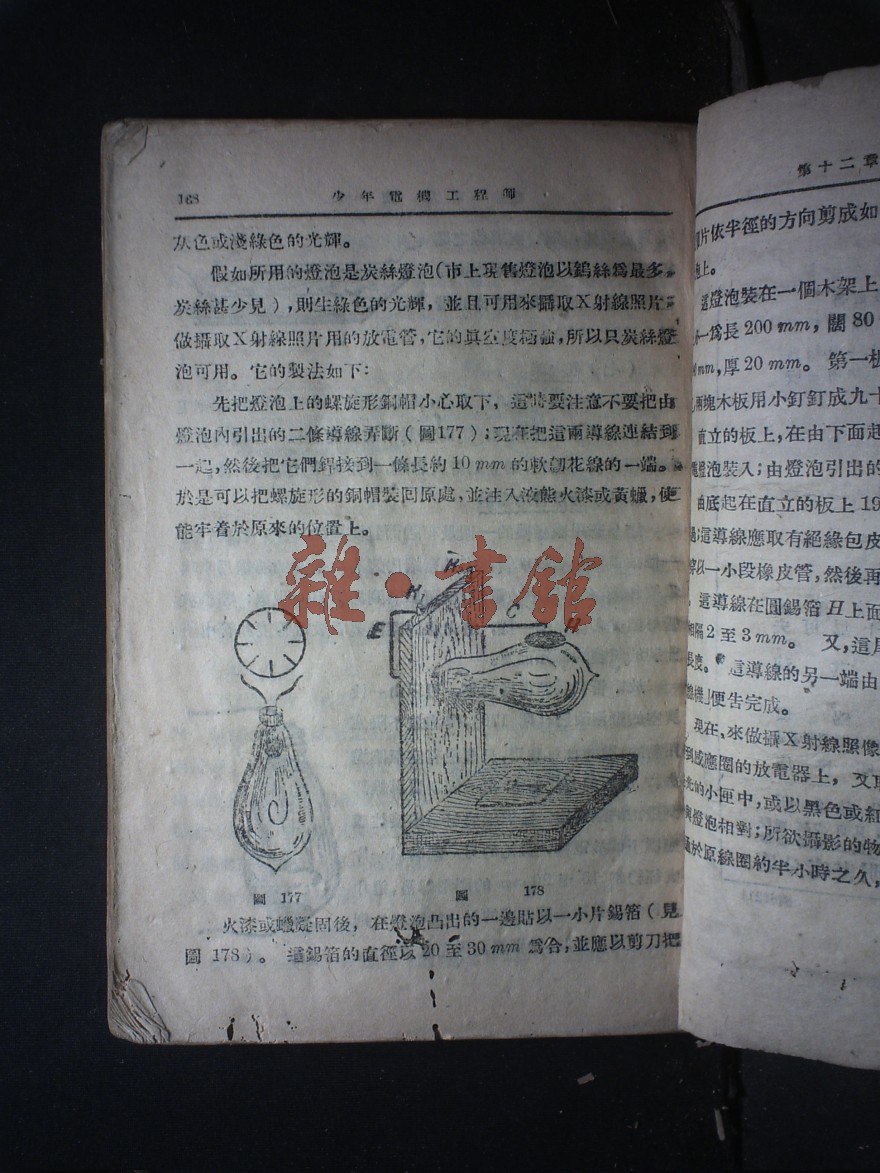 168 少年電機工程師
灰色或淺綠色的光輝。
假如所用的燈泡是炭絲燈泡(市上現售燈泡以鎢絲爲最多,
炭絲甚少見),則生綠色的光輝,並且可用來攝取X射線照片。
做攝取X射線照片用的放電管,它的眞空度極強,所以只炭絲燈
泡可用。它的製法如下:
先把燈泡上的螺旋形銅帽小心取下,這時要注意不要把由
燈泡內引出的二條導線弄斷(圖177);現在把這兩導線連結到
一起,然後把它們銲接到一條長約10 mm的軟韌花線的一端。
於是可以把螺旋形的銅帽裝回原處,並注入液態火漆或黃蠟,使
能牢着於原來的位置上。
雜·書館
E K C H
圖 177
圖 178
火漆或蠟凝固後,在燈泡凸出的一邊貼以一小片錫箔(見
圖 178)。這錫箔的直徑以20至30 mm爲合,並應以剪刀把
第十二章
片依半徑的方向剪成如
上。
這燈泡裝在一個木架上
一爲長200 mm,闊80
mm,厚20 mm。第一板
兩塊木板用小釘釘成九十
直立的板上,在由下面起
燈泡裝入;由燈泡引出的
由底起在直立的板上19
這導線應取有絕緣包皮
以一小段橡皮管,然後再
這導線在圓錫箔H上面
相隔2至3mm。又,這
長度。這導線的另一端由
機」便告完成。
現在,來做攝X射線照像
到感應圈的放電器上,又
光的小匣中,或以黑色或紅
與燈泡相對;所欲攝影的物
於原線圈約半小時之久,